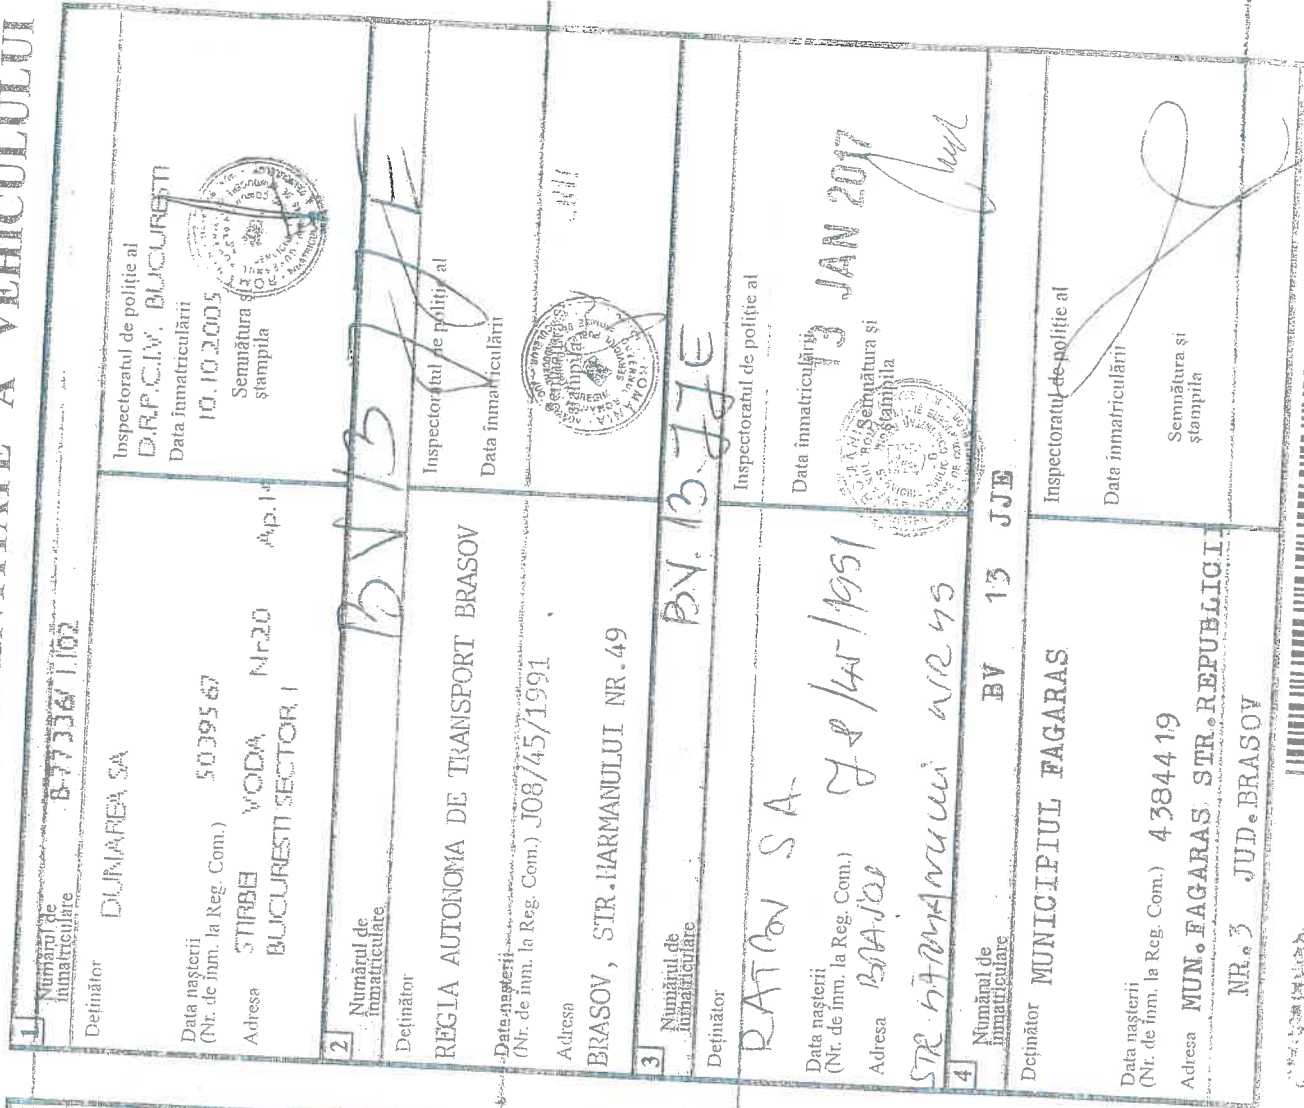 A VEHICULULUI
1
Numărul de
înmatriculare
B-77336/1.102
Deținător
DUNAREA SA
Data nașterii
(Nr. de înm. la Reg. Com.) 5039567
Adresa STIRBEI VODA Nr.20 Ap.1
BUCURESTI SECTOR, 1
Inspectoratul de poliție al
D.R.P.C.I.V. BUCURESTI
Data înmatriculării
10.10.2005
Semnătura și
ștampila
2
Numărul de
înmatriculare
BV 13
Deținător
REGIA AUTONOMA DE TRANSPORT BRASOV
Data nașterii
(Nr. de înm. la Reg. Com.) J08/45/1991
Adresa
BRASOV, STR.HARMANULUI NR.49
Inspectoratul de poliție al
Data înmatriculării
3
Numărul de
înmatriculare
BV.13.JJE
Deținător
RATBV SA
Data nașterii
(Nr. de înm. la Reg. Com.)
Adresa
STR HARMANULUI
Inspectoratul de poliție al
Data înmatriculării
13 JAN 2017
Semnătura și
ștampila
4
Numărul de
înmatriculare
BV 13 JJE
Deținător MUNICIPIUL FAGARAS
Data nașterii
(Nr. de înm. la Reg. Com.) 4384419
Adresa MUN.FAGARAS STR.REPUBLICII
NR.3 JUD.BRASOV
Inspectoratul de poliție al
Data înmatriculării
Semnătura și
ștampila